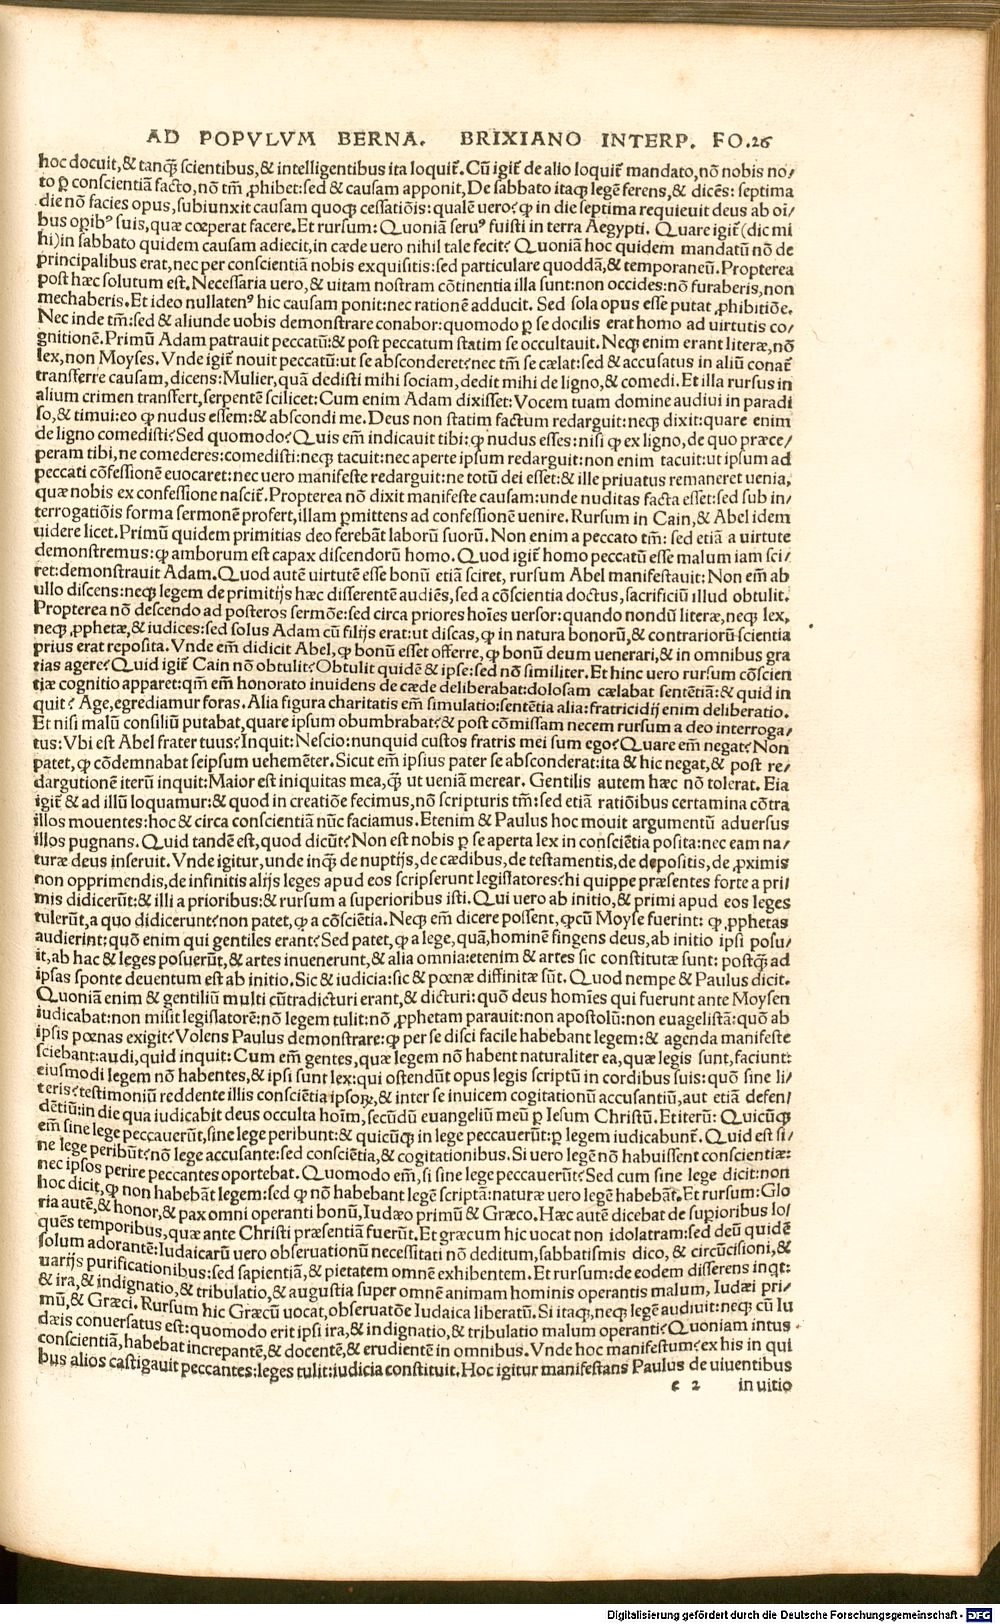 AD POPVLVM BERNA. BRIXIANO INTERP. FO.26
hoc docuit,& tanq̃ scientibus,& intelligentibus ita loquit̃. Cũ igit̃ de alio loquit̃ mandato,nõ nobis no/
to ꝑ conscientiã facto,nõ tm̃ ꝓhibet:sed & causam apponit,De sabbato itaqꝫ legẽ ferens,& dicẽs: septima
die nõ facies opus,subiunxit causam quoqꝫ cessatiõis: qualẽ uero? ꝙ in die septima requieuit deus ab oĩ/
bus opibꝰ suis,quæ cœperat facere.Et rursum: Quoniã seruꝰ fuisti in terra Aegypti. Quare igit̃ (dic mi
hi)in sabbato quidem causam adiecit,in cæde uero nihil tale fecit? Quoniã hoc quidem mandatũ nõ de
principalibus erat,nec per conscientiã nobis exquisitis:sed particulare quoddã,& temporaneũ.Propterea
post hæc solutum est.Necessaria uero,& uitam nostram cõtinentia illa sunt:non occides:nõ furaberis,non
mechaberis.Et ideo nullatenꝰ hic causam ponit:nec rationẽ adducit. Sed sola opus esse putat ꝓhibitiõe.
Nec inde tm̃:sed & aliunde uobis demonstrare conabor:quomodo ꝑ se docilis erat homo ad uirtutis co/
gnitionẽ.Primũ Adam patrauit peccatũ:& post peccatum statim se occultauit. Neqꝫ enim erant literæ,nõ
lex,non Moyses. Vnde igit̃ nouit peccatũ:ut se absconderet?nec tm̃ se cælat:sed & accusatus in aliũ conat̃
transferre causam,dicens:Mulier,quã dedisti mihi sociam,dedit mihi de ligno,& comedi.Et illa rursus in
alium crimen transfert,serpentẽ scilicet:Cum enim Adam dixisset:Vocem tuam domine audiui in paradi
so,& timui:eo ꝙ nudus essem:& abscondi me. Deus non statim factum redarguit:neqꝫ dixit:quare enim
de ligno comedisti?Sed quomodo?Quis em̃ indicauit tibi:ꝙ nudus esses:nisi ꝙ ex ligno,de quo præce/
peram tibi,ne comederes:comedisti:neqꝫ tacuit:nec aperte ipsum redarguit:non enim tacuit:ut ipsum ad
peccati cõfessionẽ euocaret:nec uero manifeste redarguit:ne totũ dei esset:& ille priuatus remaneret uenia,
quæ nobis ex confessione nascit̃.Propterea nõ dixit manifeste causam:unde nuditas facta esset:sed sub in/
terrogatiõis forma sermonẽ profert,illam ꝑmittens ad confessionẽ uenire. Rursum in Cain,& Abel idem
uidere licet.Primũ quidem primitias deo ferebãt laborũ suorũ. Non enim a peccato tm̃: sed etiã a uirtute
demonstremus:ꝙ amborum est capax discendorũ homo. Quod igit̃ homo peccatũ esse malum iam sci/
ret:demonstrauit Adam.Quod autẽ uirtutẽ esse bonũ etiã sciret, rursum Abel manifestauit: Non em̃ ab
ullo discens:neqꝫ legem de primitijs hæc disserentẽ audiẽs,sed a cõscientia doctus,sacrificiũ illud obtulit.
Propterea nõ descendo ad posteros sermõe:sed circa priores hoĩes uersor:quando nondũ literæ,neqꝫ lex,
neqꝫ ꝓphetæ,& iudices:sed solus Adam cũ filijs erat:ut discas,ꝙ in natura bonorũ,& contrariorũ scientia
prius erat reposita. Vnde em̃ didicit Abel,ꝙ bonũ esset offerre,ꝙ bonũ deum uenerari,& in omnibus gra
tias agere?Quid igit̃ Cain nõ obtulit?Obtulit quidẽ & ipse:sed nõ similiter.Et hinc uero rursum cõscien
tiæ cognitio apparet:qm̃ em̃ honorato inuidens de cæde deliberabat:dolosam cælabat sentẽtiã:& quid in
quit? Age,egrediamur foras.Alia figura charitatis em̃ simulatio:sentẽtia alia:fratricidij enim deliberatio.
Et nisi malũ consiliũ putabat,quare ipsum obumbrabat?& post cõmissam necem rursum a deo interroga/
tus:Vbi est Abel frater tuus?Inquit:Nescio:nunquid custos fratris mei sum ego?Quare em̃ negat?Non
patet,ꝙ cõdemnabat seipsum uehemẽter. Sicut em̃ ipsius pater se absconderat:ita & hic negat,& post re/
dargutionẽ iterũ inquit:Maior est iniquitas mea,q̃ ut ueniã merear. Gentilis autem hæc nõ tolerat. Eia
igit̃ & ad illũ loquamur:& quod in creatiõe fecimus,nõ scripturis tm̃:sed etiã ratiõibus certamina cõtra
illos mouentes:hoc & circa conscientiã nũc faciamus.Etenim & Paulus hoc mouit argumentũ aduersus
illos pugnans.Quid tandẽ est,quod dicũt?Non est nobis ꝑ se aperta lex in consciẽtia posita:nec eam na/
turæ deus inseruit. Vnde igitur,unde inq̃ de nuptijs,de cædibus,de testamentis,de depositis,de ꝓximis
non opprimendis,de infinitis alijs leges apud eos scripserunt legislatores?hi quippe præsentes forte a pri/
mis didicerũt:& illi a prioribus:& rursum a superioribus isti. Qui uero ab initio,& primi apud eos leges
tulerũt,a quo didicerunt?non patet,ꝙ a cõsciẽtia. Neqꝫ em̃ dicere possent,ꝙcũ Moyse fuerint: ꝙ ꝓphetas
audierint:quõ enim qui gentiles erant?Sed patet,ꝙ a lege,quã,hominẽ fingens deus,ab initio ipsi posu/
it,ab hac & leges posuerũt,& artes inuenerunt,& alia omnia:etenim & artes sic constitutæ sunt: postq̃ ad
ipsas sponte deuentum est ab initio.Sic & iudicia:sic & pœnæ diffinitæ sũt. Quod nempe & Paulus dicit.
Quoniã enim & gentiliũ multi cũtradicturi erant,& dicturi: quõ deus homĩes qui fuerunt ante Moysen
iudicabat:non misit legislatorẽ:nõ legem tulit:nõ ꝓphetam parauit:non apostolũ:non euagelistã:quõ ab
ipsis pœnas exigit?Volens Paulus demonstrare:ꝙ per se disci facile habebant legem:& agenda manifeste
sciebant:audi,quid inquit: Cum em̃ gentes,quæ legem nõ habent naturaliter ea,quæ legis sunt,faciunt:
eiusmodi legem nõ habentes,& ipsi sunt lex:qui ostendũt opus legis scriptũ in cordibus suis: quõ sine li/
teris?testimoniũ reddente illis consciẽtia ipsoꝝ,& inter se inuicem cogitationũ accusantiũ,aut etiã defen/
dẽtiũ:in die qua iudicabit deus occulta hoĩm,secũdũ euangeliũ meũ ꝑ Iesum Christũ.Etiterũ: Quicũqꝫ
em̃ sine lege peccauerũt,sine lege peribunt:& quicũqꝫ in lege peccauerũt:ꝑ legem iudicabunt̃. Quid est si/
ne lege peribũt?nõ lege accusante:sed consciẽtia,& cogitationibus. Si uero legẽ nõ habuissent conscientiæ:
nec ipsos perire peccantes oportebat. Quomodo em̃,si sine lege peccauerũt?Sed cum sine lege dicit:non
hoc dicit,ꝙ non habebãt legem:sed ꝙ nõ habebant legẽ scriptã:naturæ uero legẽ habebãt.Et rursum:Glo
ria autẽ,& honor,& pax omni operanti bonũ,Iudæo primũ & Græco.Hæc autẽ dicebat de supioribus lo/
quẽs temporibus,quæ ante Christi præsentiã fuerũt.Et græcum hic uocat non idolatram:sed deũ quidẽ
solum adorantẽ:Iudaicarũ uero obseruationũ necessitati nõ deditum,sabbatismis dico,& circũcisioni,&
uarijs purificationibus:sed sapientiã,& pietatem omnẽ exhibentem. Et rursum:de eodem disserens inqt:
& ira,& indignatio,& tribulatio,& augustia super omnẽ animam hominis operantis malum, Iudæi pri/
mũ,& Græci. Rursum hic Græcũ uocat,obseruatõe Iudaica liberatũ. Si itaqꝫ,neqꝫ legẽ audiuit:neqꝫ cũ Iu
dæis conuersatus est:quomodo erit ipsi ira,& indignatio,& tribulatio malum operanti?Quoniam intus
conscientiã,habebat increpantẽ,& docentẽ,& erudientẽ in omnibus. Vnde hoc manifestum?ex his in qui
bus alios castigauit peccantes:leges tulit:iudicia constituit.Hoc igitur manifestans Paulus de uiuentibus
e 2 in uitio
Digitalisierung gefördert durch die Deutsche Forschungsgemeinschaft - DFG